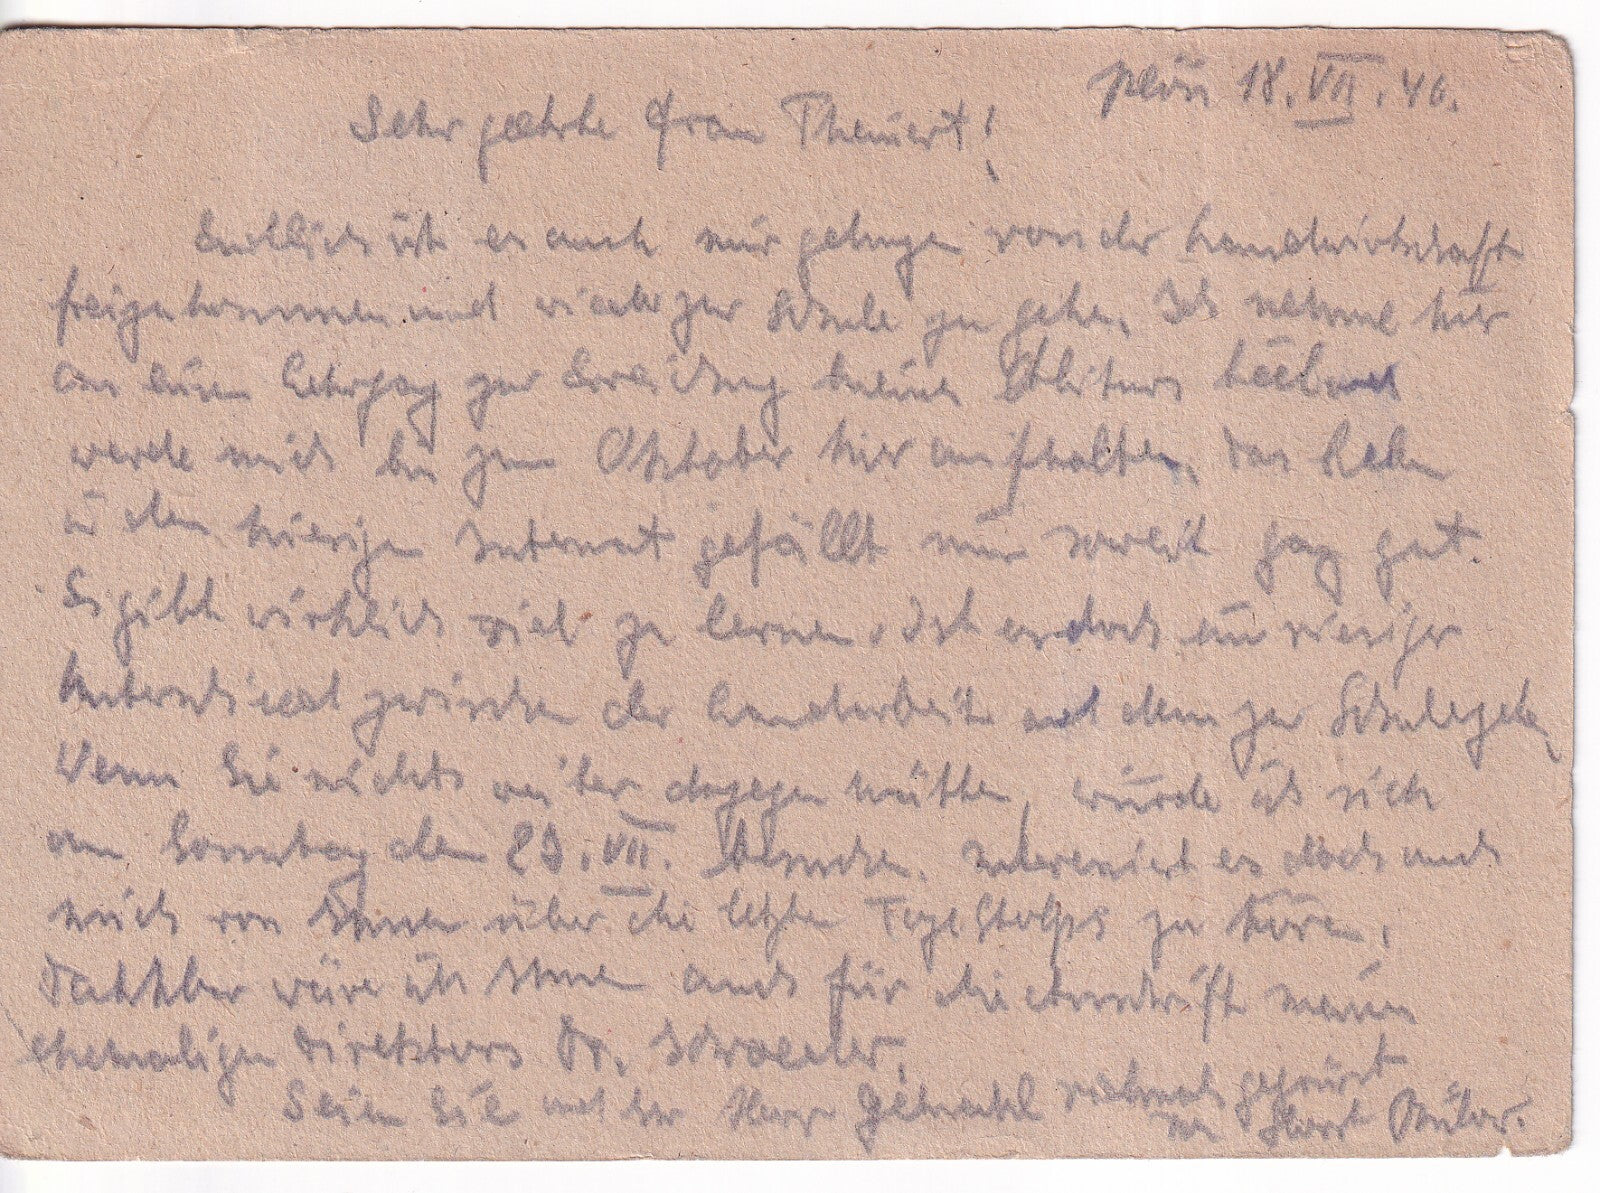 Plön 18. VII. 46.
Sehr geehrte Frau Theuert!
Endlich ist es auch mir gelungen von der Landwirtschaft
freizukommen und wieder zur Schule zu gehen. Ich nehme hier
an einem Lehrgang zur Erreichung meines Abiturs teil und
werde mich bis zum Oktober hier aufhalten. Das Leben
in dem hiesigen Internat gefällt mir soweit ganz gut.
Es gibt wirklich viel zu lernen. Ist es doch ein riesiger
Unterschied zwischen der Landarbeit und dem zur Schulegehen.
Wenn Sie nichts weiter dagegen hätten, würde ich sich
am Sonntag den VII. besuchen. Interessiert es doch auch
mich von Ihnen über die letzten Tage Stolps zu hören.
Dankbar wäre ich Ihnen auch für die Anschrift meines
ehemaligen Direktors Dr. Schroeder.
Seien Sie und Ihr Herr Gemahl nochmals gegrüsst
von Horst